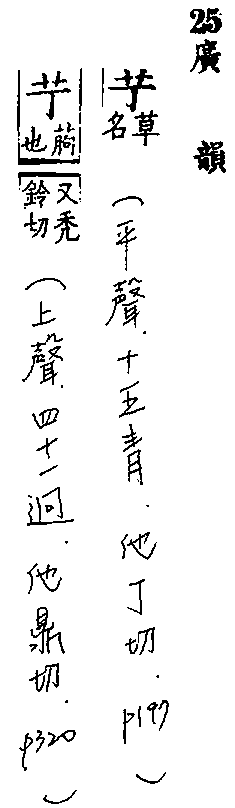 25廣韻
艼草名(平聲.十五青.他丁切.p197)
艼葋也又秃鈴切(上聲.四十一迥.他鼎切.p320)